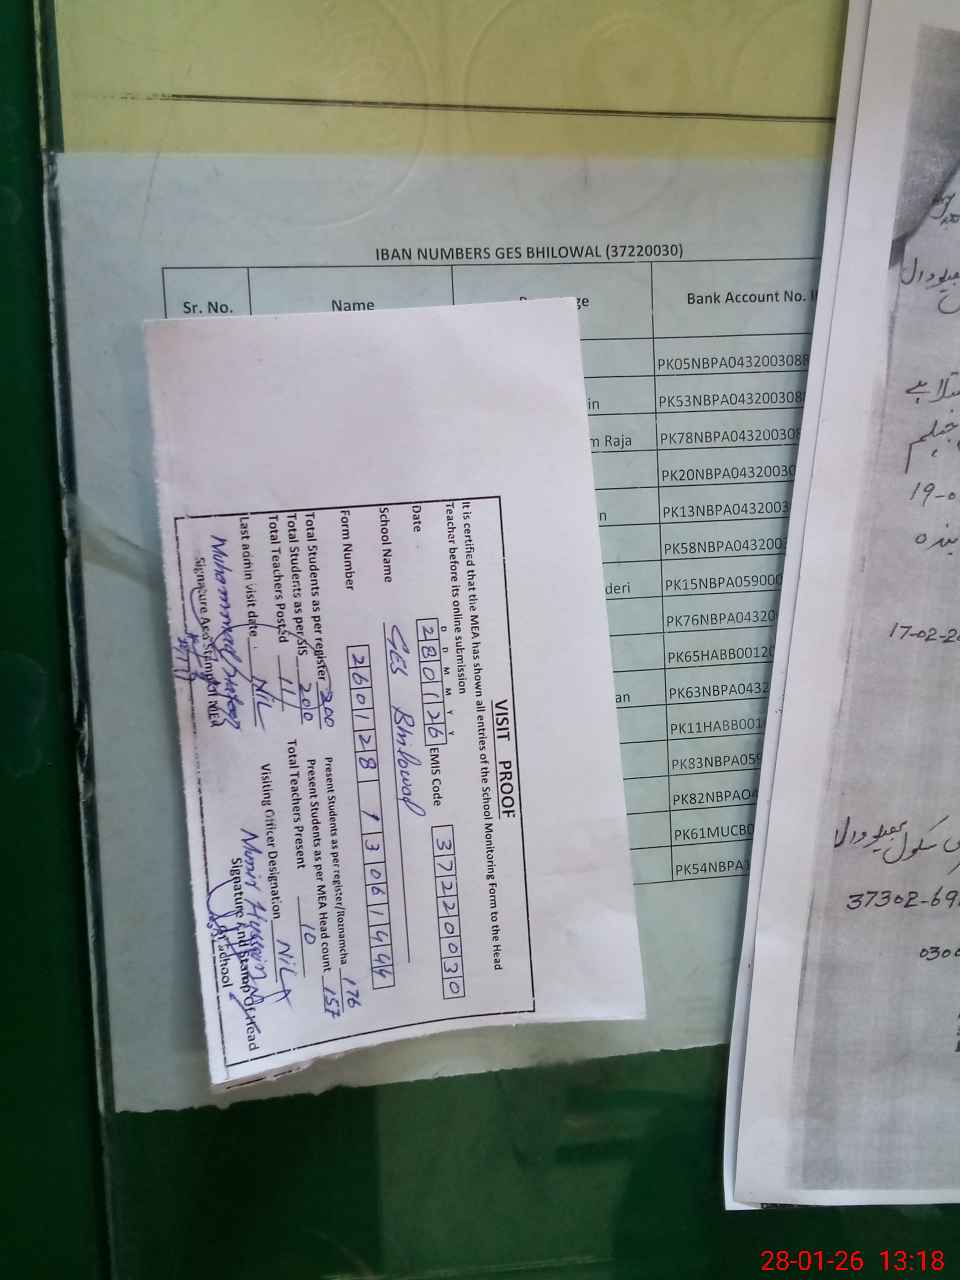 IBAN NUMBERS GES BHILOWAL (37220030)
Sr. No. Name ge Bank Account No.
PK05NBPA043200308
in PK53NBPA04320030
m Raja PK78NBPA04320030
PK20NBPA0432003
n PK13NBPA0432003
PK58NBPA043200
deri PK15NBPA05900
PK76NBPA04320
PK65HABB00120
an PK63NBPA0432
PK11HABB001
PK83NBPA059
PK82NBPA04
PK61MUCB0
PK54NBPA1
VISIT PROOF
It is certified that the MEA has shown all entries of the School Monitoring Form to the Head
Teacher before its online submission
D D M M Y Y
Date 280126 EMIS Code 37220030
School Name GES Bhilowal
Form Number 260128 13061444
Total Students as per register 200 Present Students as per register/Roznamcha 176
Total Students as per SIS 200 Present Students as per MEA Head count 157
Total Teachers Posted 11 Total Teachers Present 10
Last admin visit date NIL Visiting Officer Designation NIL
Muhammad Munir Hussain
Signature And Stamp of MEA Signature And Stamp Of Head
of School
19-0
17-02-2
سکول بھیلووال
37302-69
0300
28-01-26 13:18